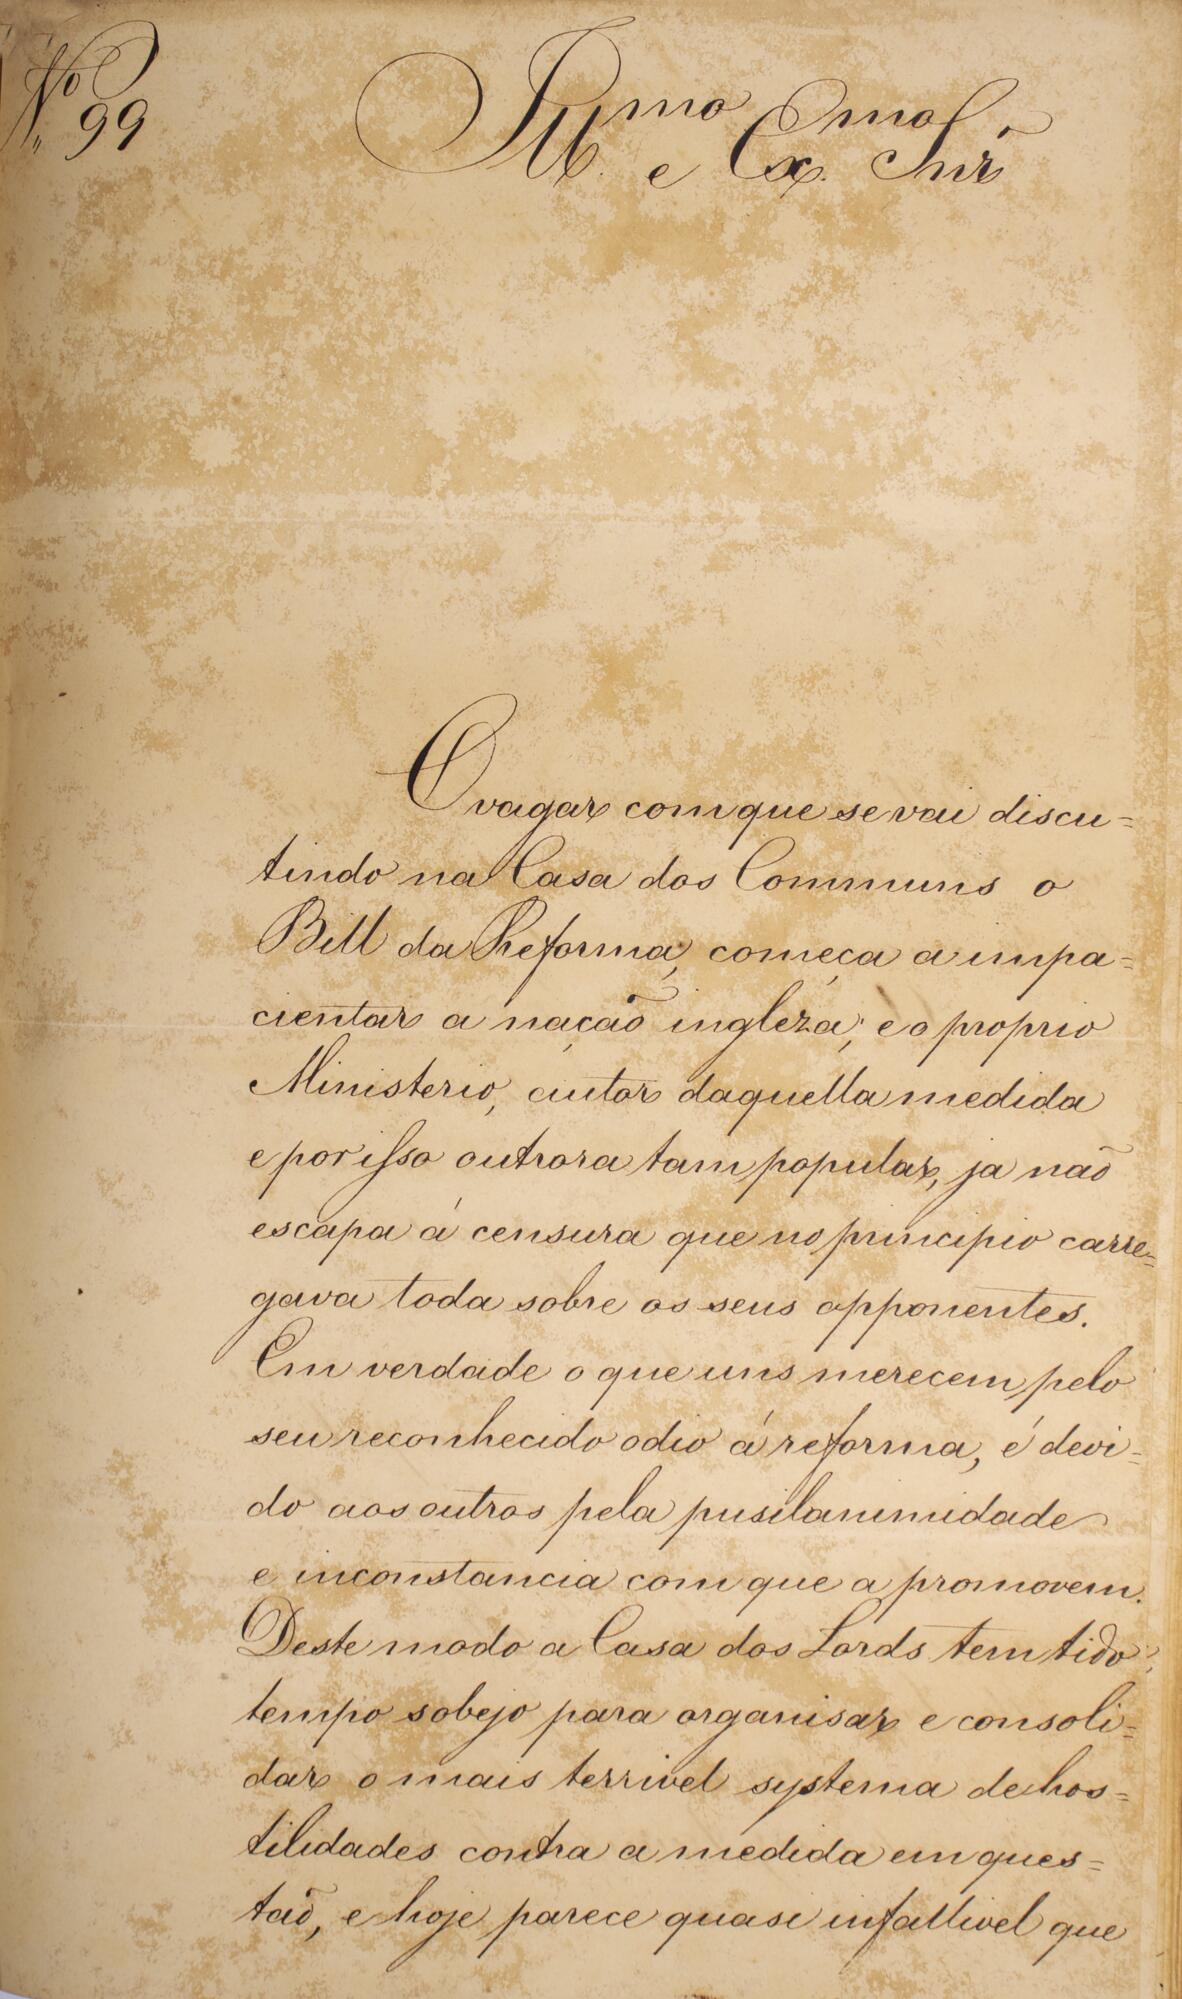 Nº 99
Illmo e Exmo Snr
O vagar com que se vai discu=
tindo na Casa dos Communs o
Bill da Reforma, começa a impa=
cientar a nação ingleza; e o proprio
Ministerio, autor daquella medida
e por isso outrora tam popular, ja não
escapa á censura que no principio carre=
gava toda sobre os seus opponentes.
Em verdade o que uns merecem pelo
seu reconhecido odio á reforma, é devi=
do aos outros pela pusilanimidade
e inconstancia com que a promovem.
Deste modo a Casa dos Lords tem tido
tempo sobejo para organisar e consoli=
dar o mais terrivel systema de hos=
tilidades contra a medida em ques=
tão, e hoje parece quasi infallivel que